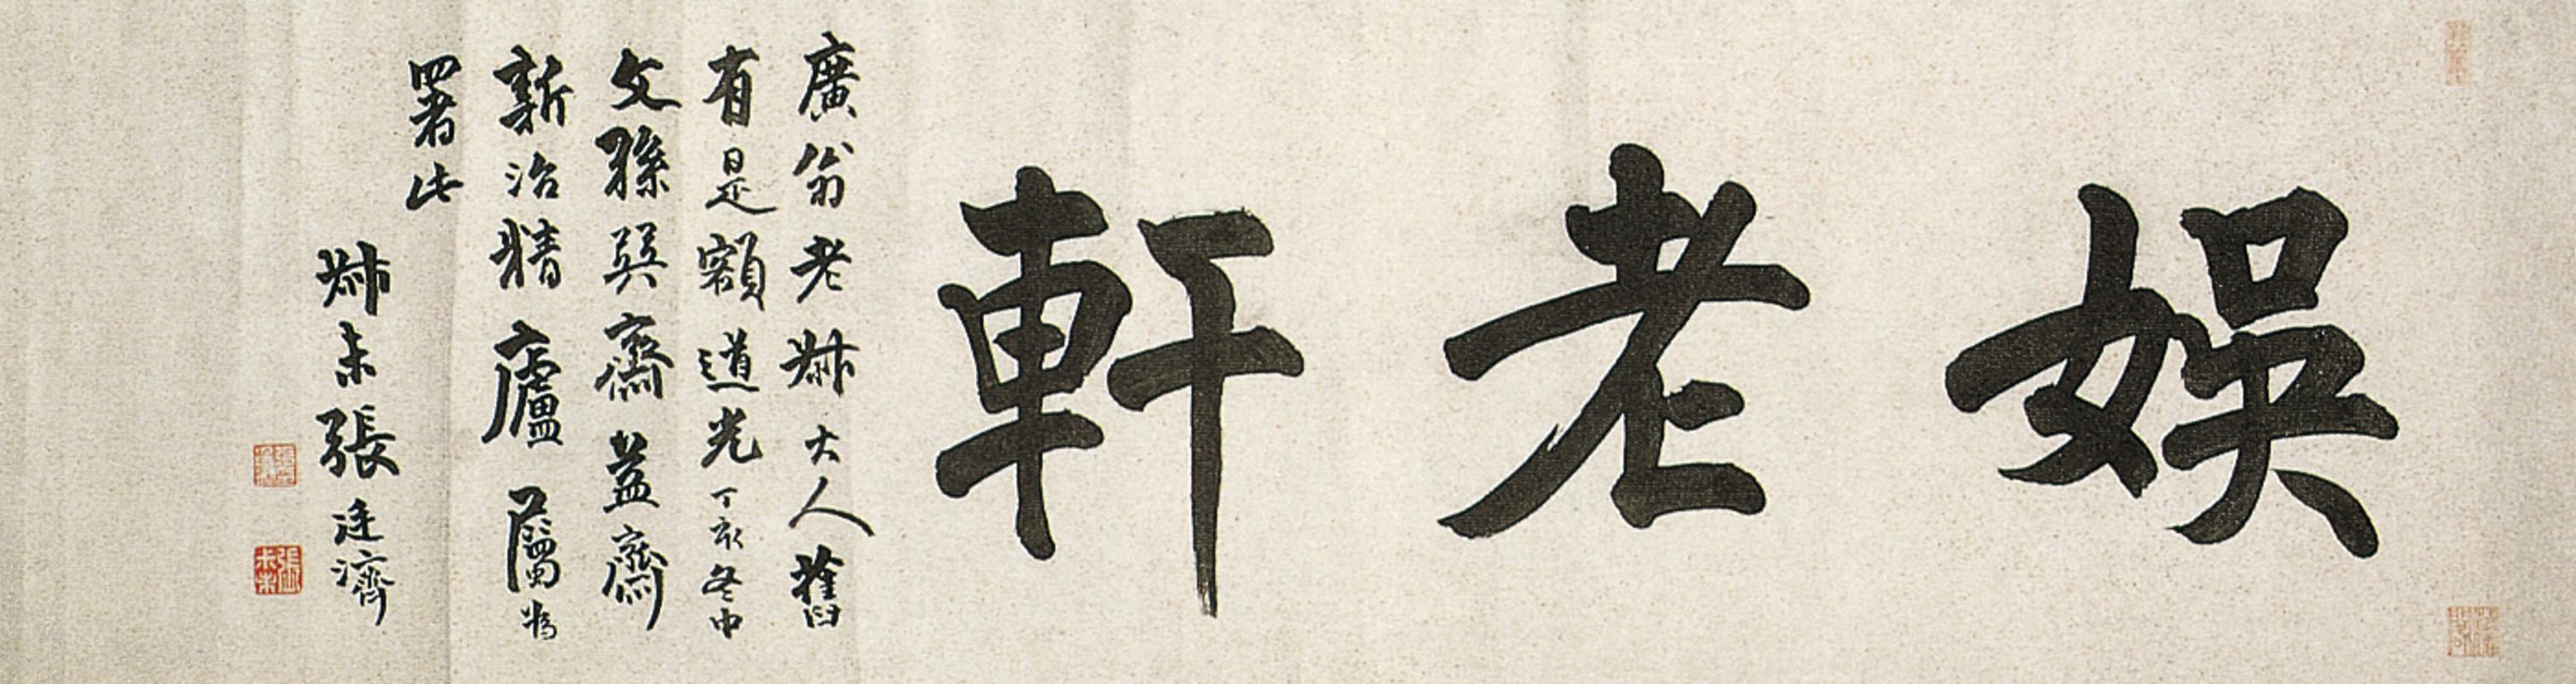 娛老軒
廣翁老叔大人舊
有是額道光丁亥冬中
文孫巽齋齋
新治精廬屬為
署此
叔未張廷濟